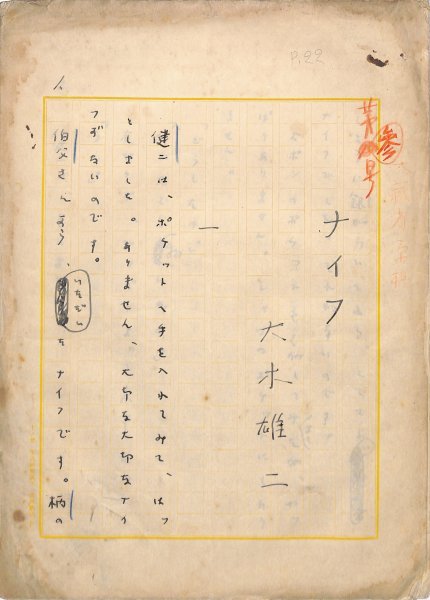 P.22
参
第 号
ナイフ
大木雄二
一
健二は、ポケットへ手を入れてみて、はつ
としました。ありません、大切な大切なナイ
フがないのです。
伯父さんから、いただいたナイフです。柄の